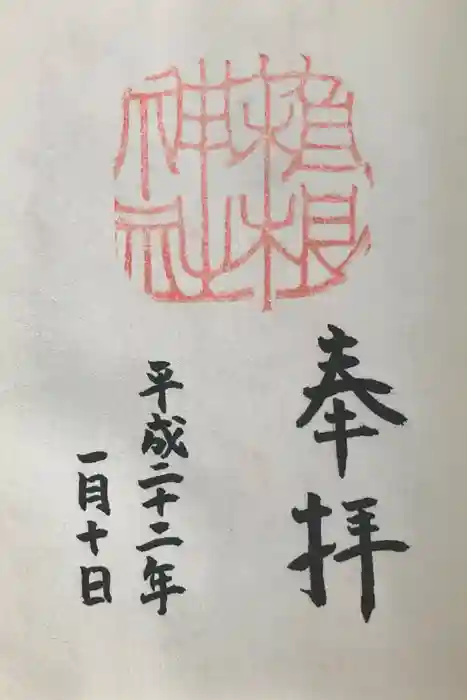 植根
神社
奉拝
平成二十二年
一月十日